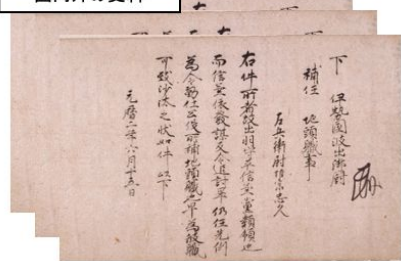 下 伊勢國波出御厨
補任 地頭職事
左兵衛尉惟宗忠久
右件所者故出羽守平信兼黨類領也
而信兼依發謀反令追討畢仍任先例
為令勤仕公役所補地頭職也早為彼職
可致沙汰之狀如件 以下
元曆二年六月十五日